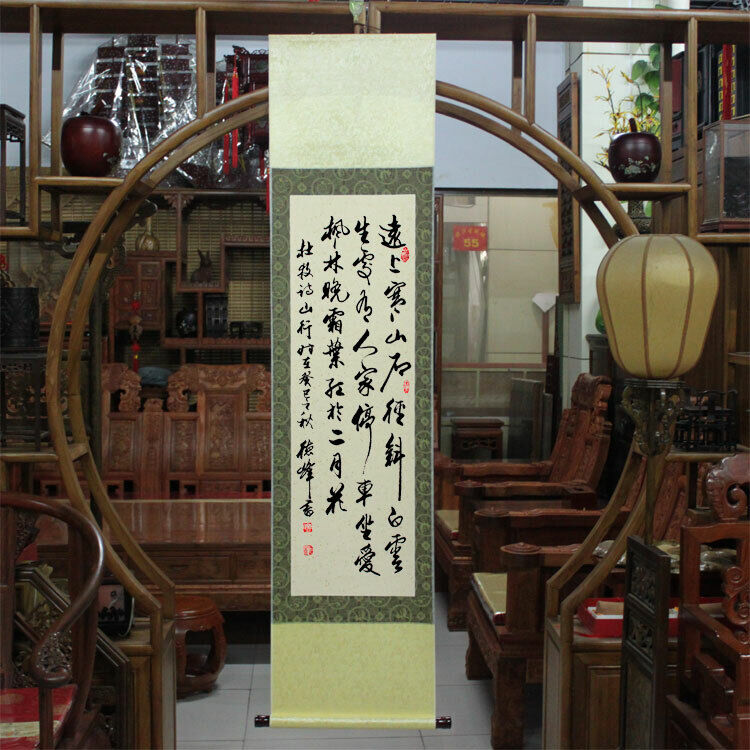 遠上寒山石徑斜白雲
生處有人家停車坐愛
楓林晚霜葉紅於二月花
杜牧詩山行時在癸巳之秋德峰書
55